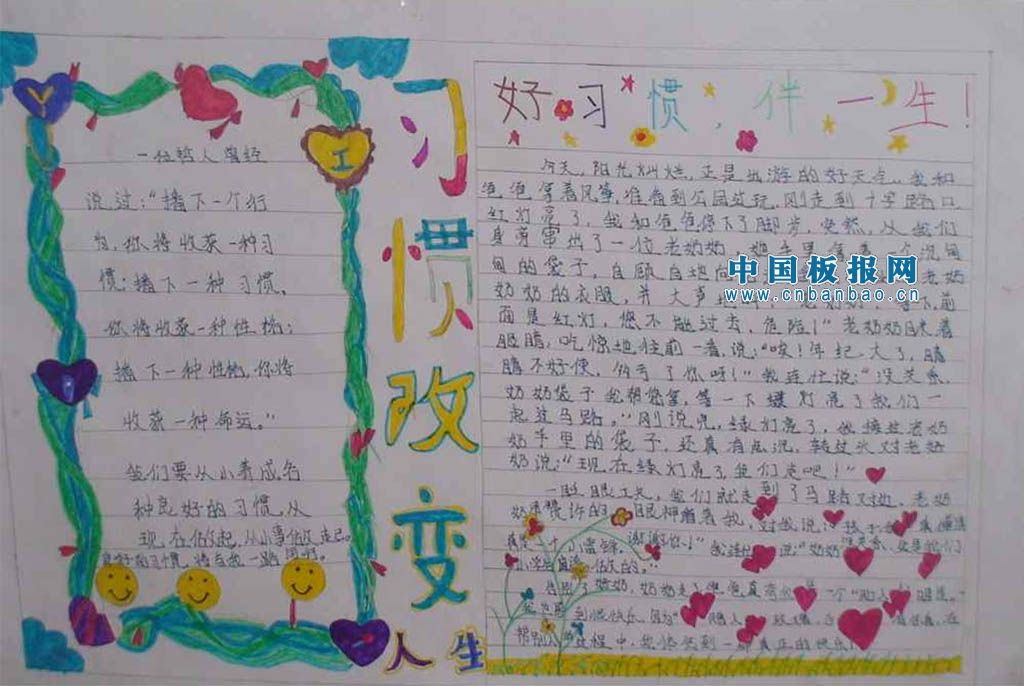 一位哲人曾经
说过:“播下一个行
为,你将收获一种习
惯;播下一种习惯,
你将收获一种性格;
播下一种性格,你将
收获一种命运。”
我们要从小养成各
种良好的习惯,从
现在做起,从小事做起。
良好的习惯,将与我一路同行。
习惯改变
人生
好习惯,伴一生!
今天,阳光灿烂,正是出游的好天气,我和
爸爸拿着风筝,准备到公园去玩,刚走到十字路口,
红灯亮了,我和爸爸停下了脚步,突然,从我们
身旁窜出了一位老奶奶,她手里拿着一个沉甸
甸的袋子,自顾自地向
老奶
奶奶的衣服,并大声
下,前
面是红灯,您不能过去,危险!”老奶奶眯着
眼睛,吃惊地往前一看,说:“唉!年纪大了,眼
睛不好使,幸亏了你呀!”我连忙说:“没关系,
奶奶袋子我帮您拿,等一下绿灯亮了我们一
起过马路。”刚说完,绿灯亮了,我接过老奶
奶手里的袋子,还真有点沉,转过头对老奶
奶说:“现在绿灯亮了,我们走吧!”
一眨眼工夫,我们就走到了马路对边,老奶
奶用赞许的眼神看着我,对我说:
谢谢你!”我连忙说:“奶奶
小学生应该做的。”
告别了奶奶,奶奶走了,爸爸
个“助人
帮别人的过程中,我体会到一种真正的快乐!
中国板报网
www.cnbanbao.cn